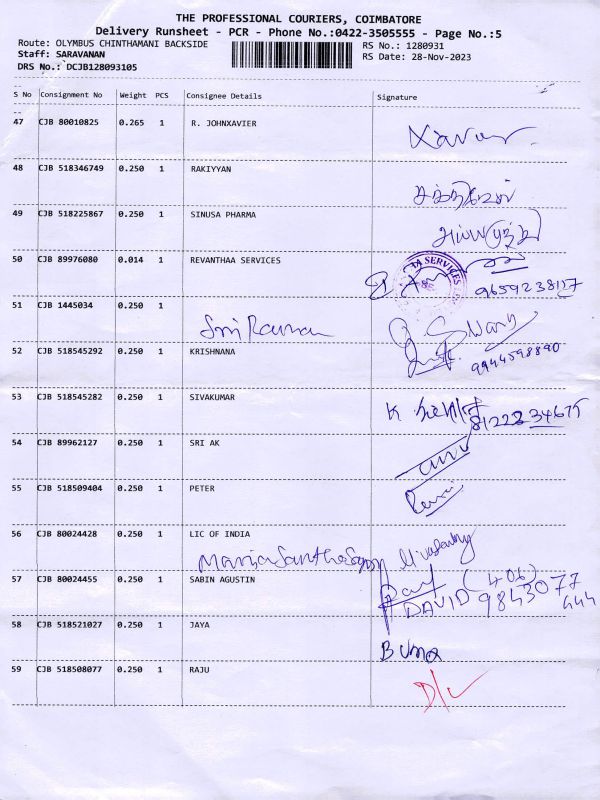 THE PROFESSIONAL COURIERS, COIMBATORE
Delivery Runsheet - PCR - Phone No.:0422-3505555 - Page No.:5
Route: OLYMBUS CHINTHAMANI BACKSIDE
RS No.: 1280931
Staff: SARAVANAN
RS Date: 28-Nov-2023
DRS No.: DCJB128093105
S No Consignment No Weight PCS Consignee Details Signature
47 CJB 80010825 0.265 1 R. JOHNXAVIER
Xavier
48 CJB 518346749 0.250 1 RAKIYYAN
49 CJB 518225867 0.250 1 SINUSA PHARMA
50 CJB 89976080 0.014 1 REVANTHAA SERVICES
9659238127
51 CJB 1445034 0.250 1
Sri Raman
52 CJB 518545292 0.250 1 KRISHNANA
9944598890
53 CJB 518545282 0.250 1 SIVAKUMAR
K
54 CJB 89962127 0.250 1 SRI AK
55 CJB 518509404 0.250 1 PETER
56 CJB 80024428 0.250 1 LIC OF INDIA
57 CJB 80024455 0.250 1 SABIN AGUSTIN
(406)
DAVID 9843077
444
58 CJB 518521027 0.250 1 JAYA
B Uma
59 CJB 518508077 0.250 1 RAJU
D/L